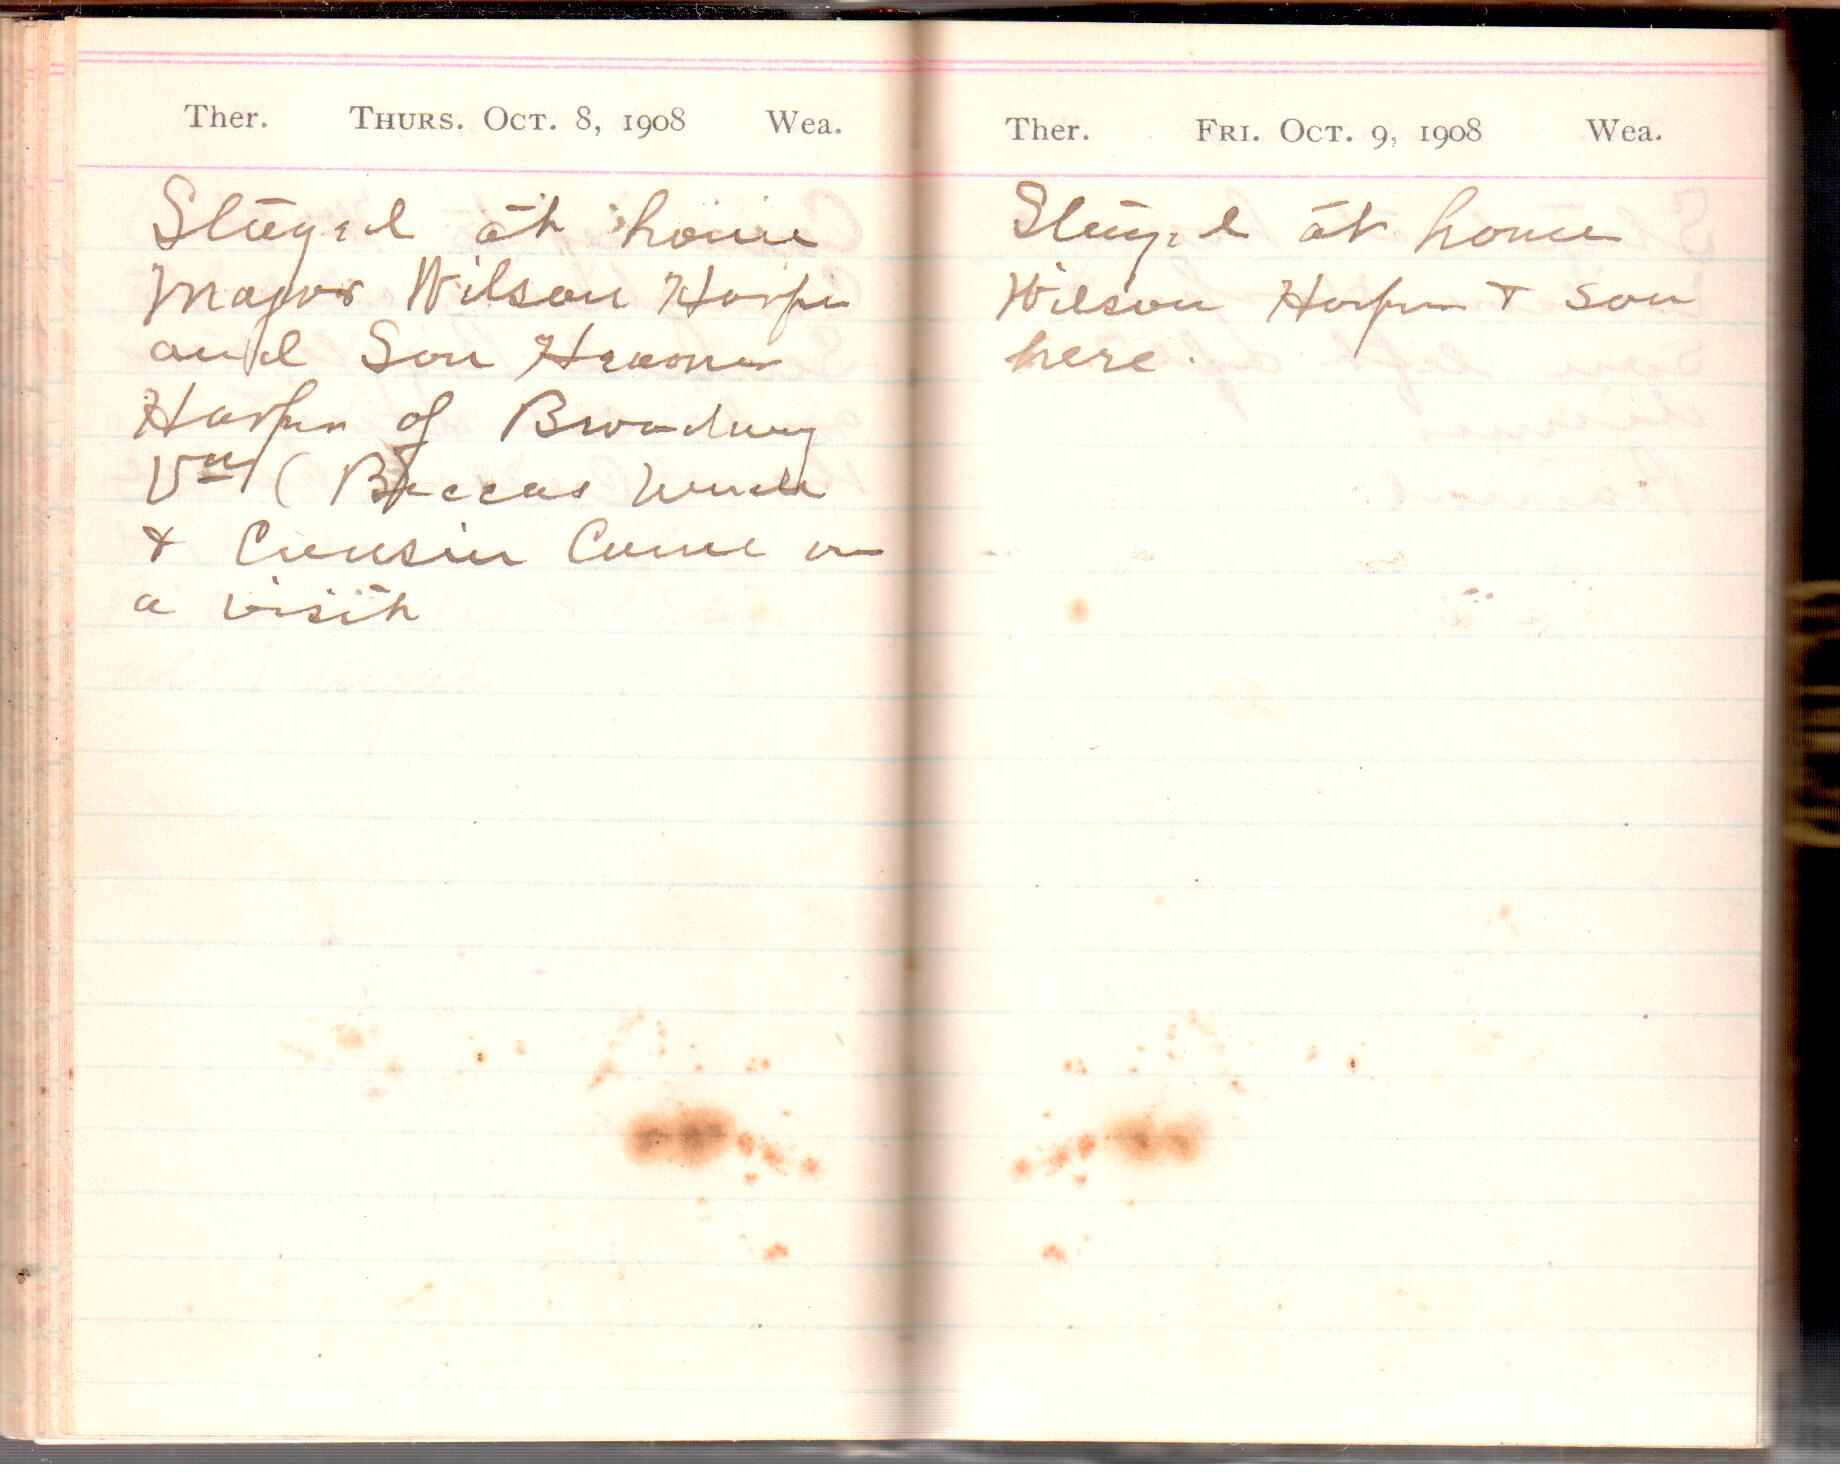 Ther. THURS. OCT. 8, 1908 Wea.
Stayed at home
Major Wilson Harper
and Son
Harper of Broadway
Va (Beccas Uncle
& Cousin Came on
a visit
Ther. FRI. OCT. 9, 1908 Wea.
Stayed at home
Wilson Harper & Son
here.